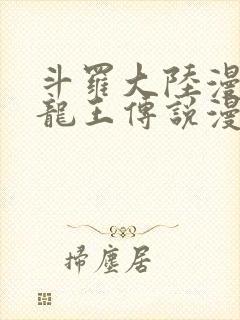 斗羅大陸漫
龍王傳說漫
掃塵居